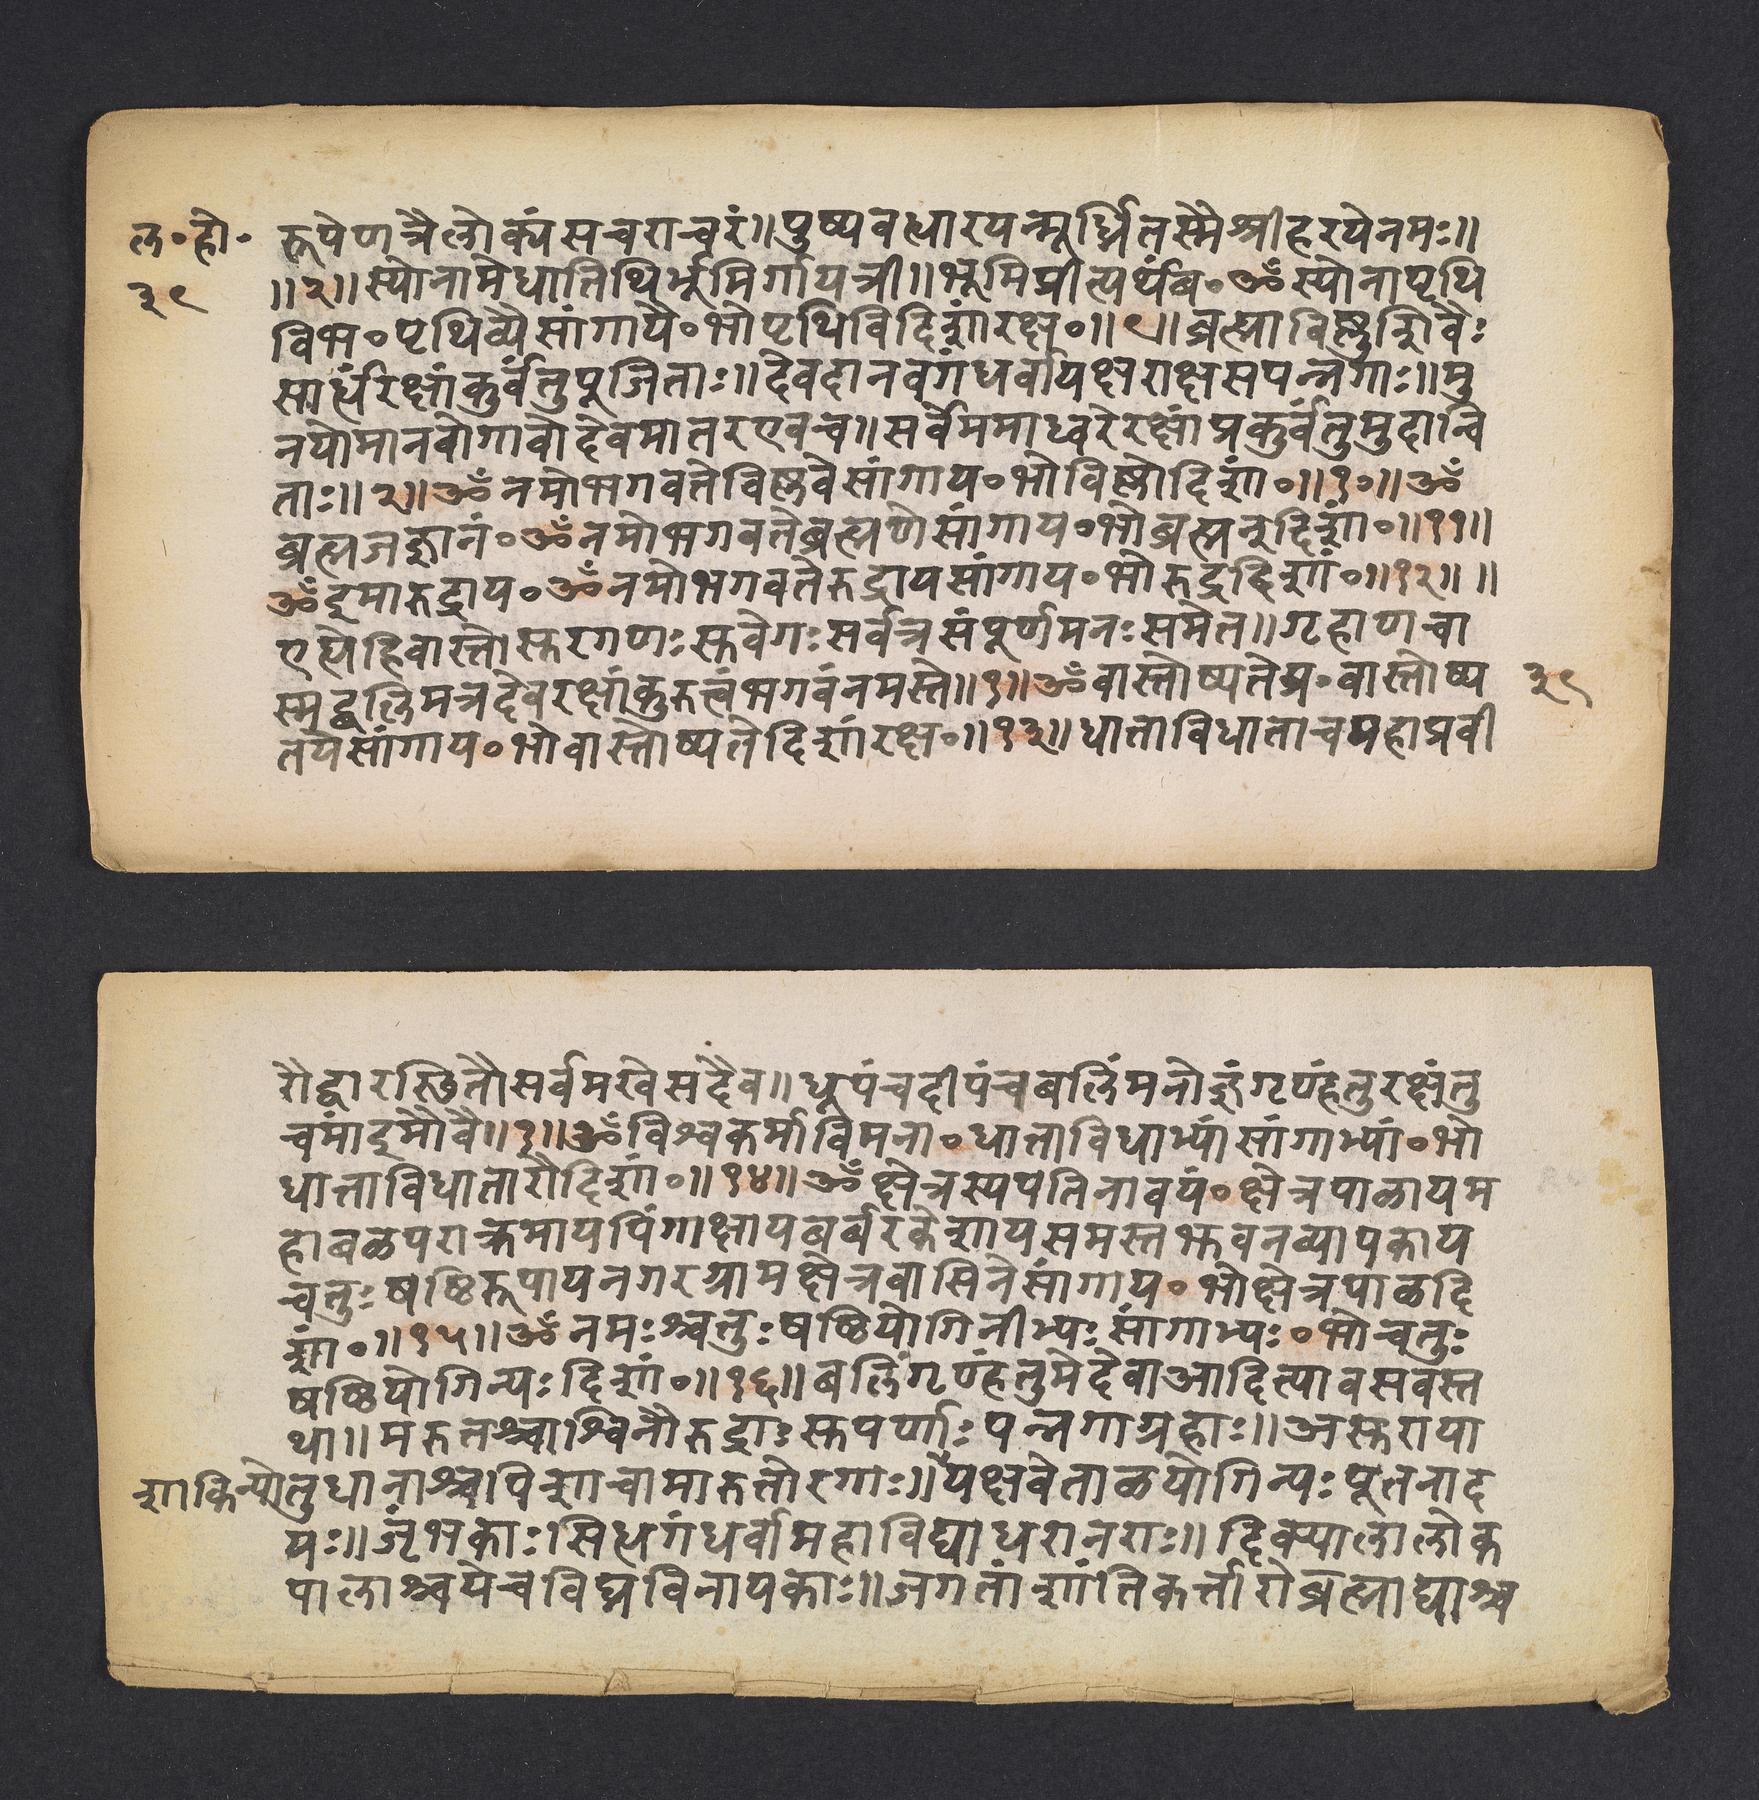 ल॰हो॰ रूपेणत्रैलोक्यंसचराचरं॥पुष्पवध्धारयन्मूर्ध्नितस्मैश्रीहरयेनमः॥
३९ ॥२॥स्योनामेधातिथिर्भूमिर्गायत्री॥भूमिप्रीत्यर्थंब॰ॐस्योनापृथि
विभ॰पृथिव्यैसांगायै॰भोपृथिविदिशंरक्ष॰॥९॥ब्रह्माविष्णुशिवैः
सार्धंरक्षांकुर्वंतुपूजिताः॥देवदानवगंधर्वायक्षराक्षसपन्नगाः॥मु
नयोमानवोगावोदेवमातरएवच॥सर्वेममाध्वरेरक्षांप्रकुर्वंतुमुदान्वि
ताः॥२॥ॐनमोभगवतेविष्णवेसांगाय॰भोविष्णोदिशं॰॥१०॥ॐ
ब्रह्मजज्ञानं॰ॐनमोभगवतेब्रह्मणेसांगाय॰भोब्रह्मन्दिशं॰॥११॥
ॐइमारुद्राय॰ॐनमोभगवतेरुद्रायसांगाय॰भोरुद्रदिशं॰॥१२॥॥
एह्येहिवास्तोसुरगणःसुवेगःसर्वत्रसंपूर्णमनःसमेत॥गृहाणचा
स्मद्बलिमत्रदेवरक्षांकुरुत्वंभगवंनमस्ते॥१॥ॐवास्तोष्पतेप्र॰वास्तोष्प ३९
तयेसांगाय॰भोवास्तोष्पतेदिशंरक्ष॰॥१३॥धाताविधाताचमहाप्रवी
रौद्वारस्थितौसर्वमखेसदैव॥धूपंचदीपंचबलिंमनोज्ञंगृण्हंतुरक्षंतु
चमांइमौवै॥१॥ॐविश्वकर्माविमना॰धाताविधाभ्यांसांगाभ्यां॰भो
धाताविधातारौदिशं॰॥१४॥ॐक्षेत्रस्यपतिनावयं॰क्षेत्रपाळायम
हाबळपराक्रमायपिंगाक्षायबर्बरकेशायसमस्तभुवनव्यापकाय
चतुःषष्टिरूपायनगरग्रामक्षेत्रवासिनेसांगाय॰भोक्षेत्रपाळदि
शं॰॥१५॥ॐनमःश्चतुःषष्ठियोगिनीभ्यःसांगाभ्यः॰भोचतुः
षष्ठियोगिन्यःदिशं॰॥१६॥बलिंगृण्हंतुमेदेवाआदित्यावसवस्त
था॥मरुतश्चाश्विनौरुद्राःसुपर्णाःपन्नगाग्रहाः॥असुराया
शाकिन्यो तुधानाश्चपिशाचामारुतोरगाः॥यक्षवेताळयोगिन्यःपूतनाद
यः॥जृंभकाःसिध्धगंधर्वामहाविद्याधरानराः॥दिक्पालालोक
पालाश्चयेचविघ्नविनायकाः॥जगतांशांतिकर्त्तारोब्रह्माद्याश्च